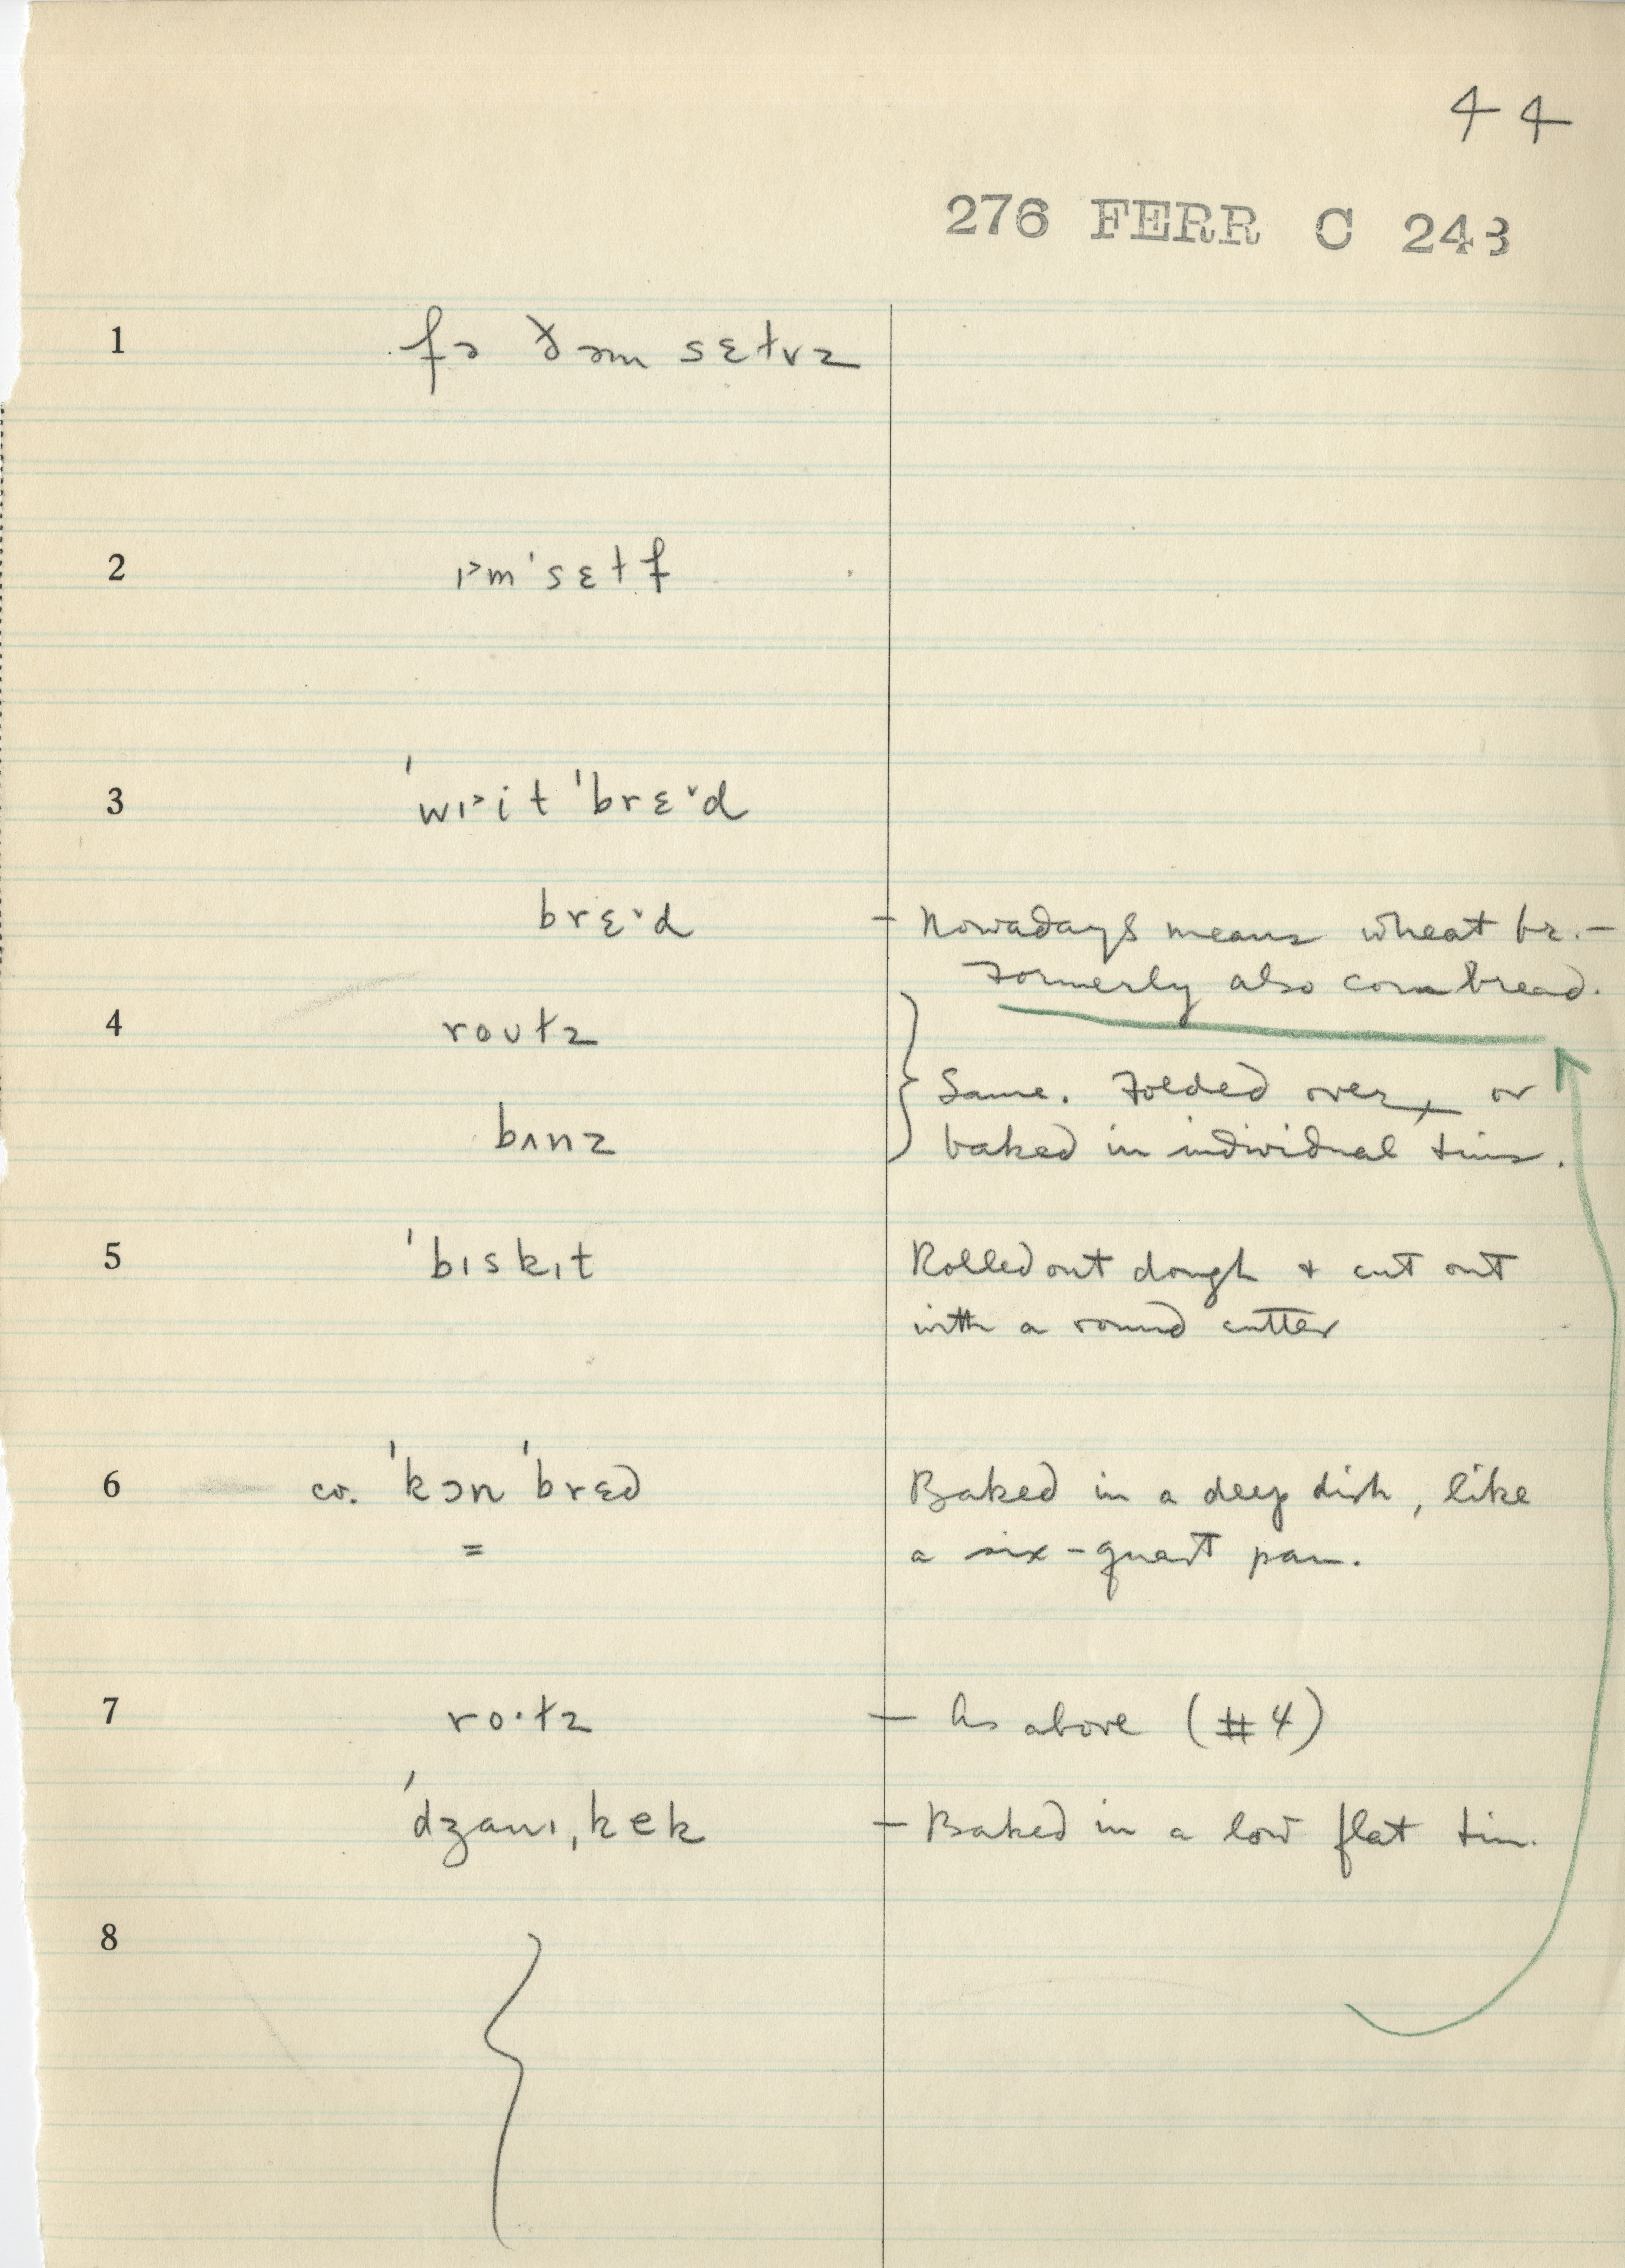 44
276 FERR C 243
1 fɚ ðəm sɛɫvz
2 ɪ˃m ˈsɛɫf
3 ˈwɪ˃it ˈbrɛ˅d
brɛ˅d – Nowadays means wheat br. –
Formerly also corn bread.
4 roʊɫz
Same. Folded over, or
bʌnz baked in individual tins.
5 ˈbɪskɪt Rolled out dough + cut out
with a round cutter
6 cv. ˈkɔn ˈbrɛd Baked in a deep dish, like
= a six-quart pan.
7 ro·ɫz – As above (#4)
ˈdʒɑnɪˌkek – Baked in a low flat tin.
8